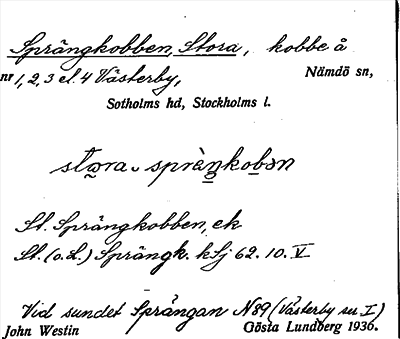 Sprängkobben, Stora, kobbe å
nr 1, 2, 3 el. 4 Västerby, Nämdö sn,
Sotholms hd, Stockholms l.
stɷra spràŋkobən
St. Sprängkobben, ek
St. (o. L.) Sprängk. kSj 62. 10. V
Vid sundet Sprängan N89 (Västerby su. I)
John Westin Gösta Lundberg 1936.